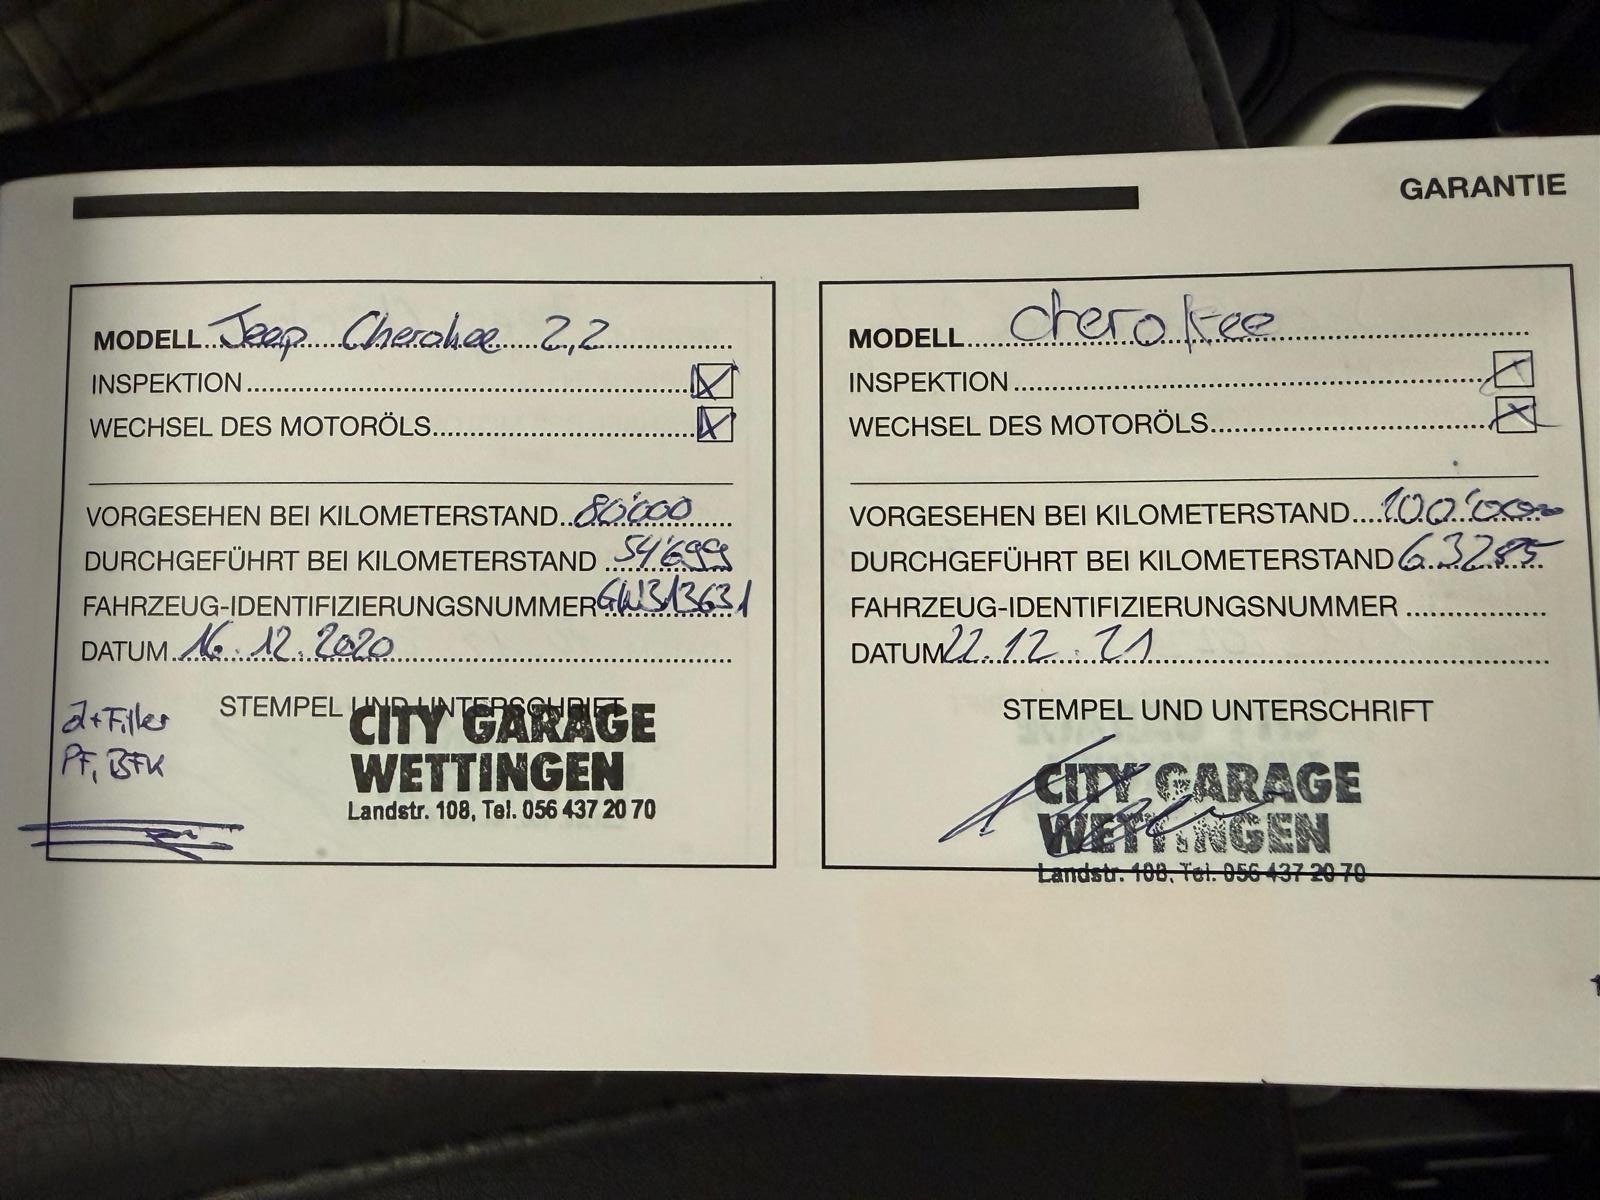 GARANTIE
MODELL Jeep Cherokee 2,2
INSPEKTION
WECHSEL DES MOTORÖLS
VORGESEHEN BEI KILOMETERSTAND 80'000
DURCHGEFÜHRT BEI KILOMETERSTAND 54'699
FAHRZEUG-IDENTIFIZIERUNGSNUMMER GW313631
DATUM 16.12.2020
STEMPEL UND UNTERSCHRIFT
Öl+Filter
PF, BFK
CITY GARAGE
WETTINGEN
Landstr. 108, Tel. 056 437 20 70
MODELL Cherokee
INSPEKTION
WECHSEL DES MOTORÖLS
VORGESEHEN BEI KILOMETERSTAND 100'000
DURCHGEFÜHRT BEI KILOMETERSTAND 63285
FAHRZEUG-IDENTIFIZIERUNGSNUMMER
DATUM 22.12.21
STEMPEL UND UNTERSCHRIFT
CITY GARAGE
WETTINGEN
Landstr. 108, Tel. 056 437 20 70